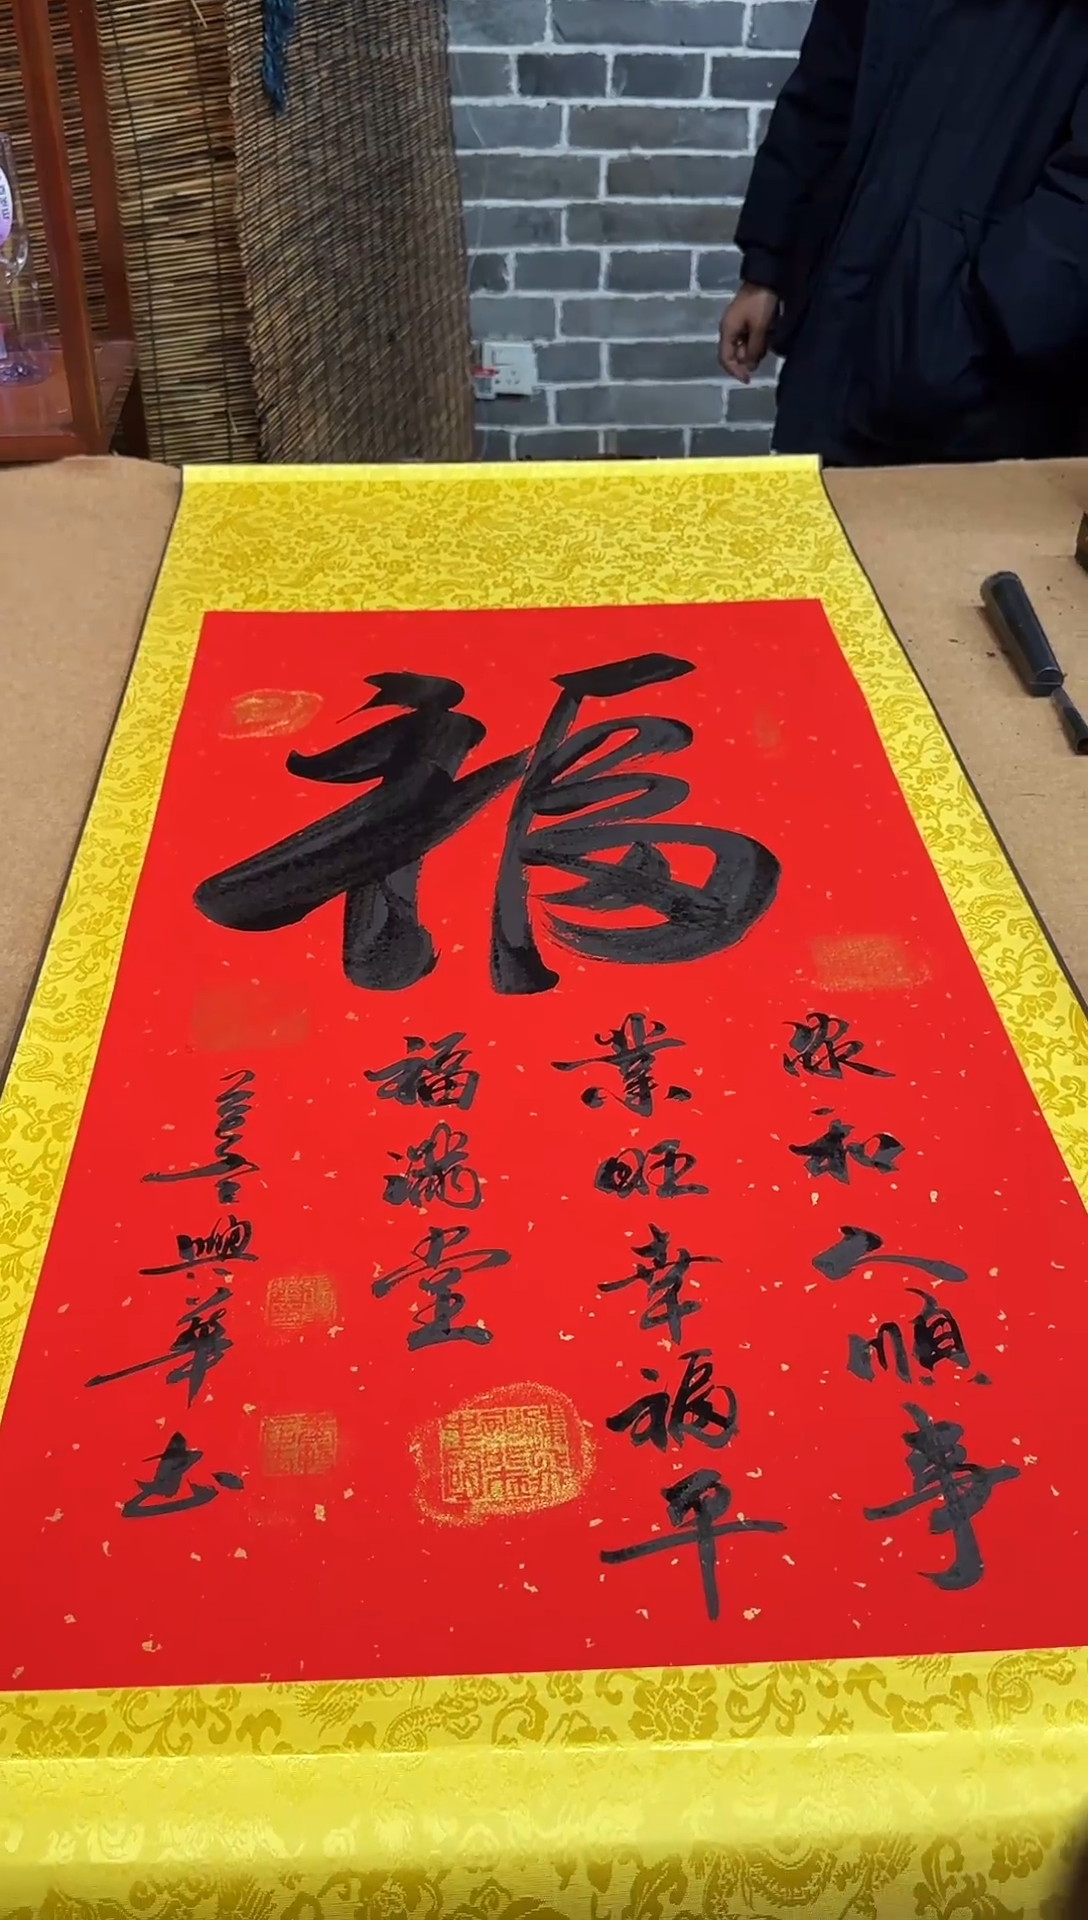 福
家和人順事
業旺幸福平
福滿堂
興華書